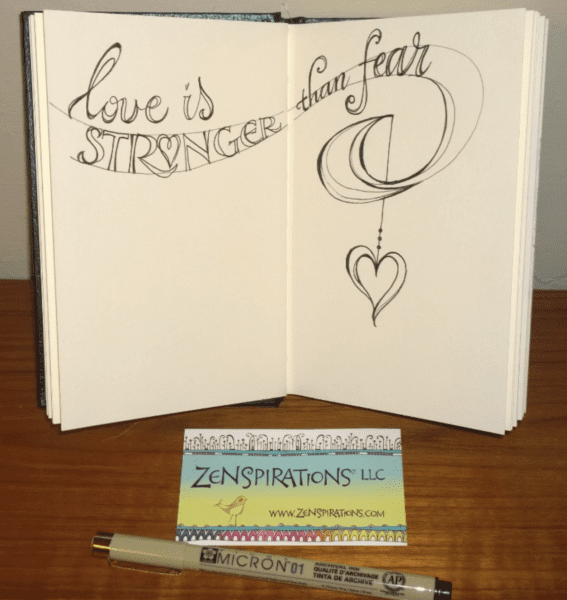 love is
STRONGER
than fear
ZENSPIRATIONS® LLC
WWW.ZENSPIRATIONS.COM
MICRON® 01
ARCHIVAL INK
QUALITÉ D'ARCHIVAGE
TINTA DE ARCHIVE
AP